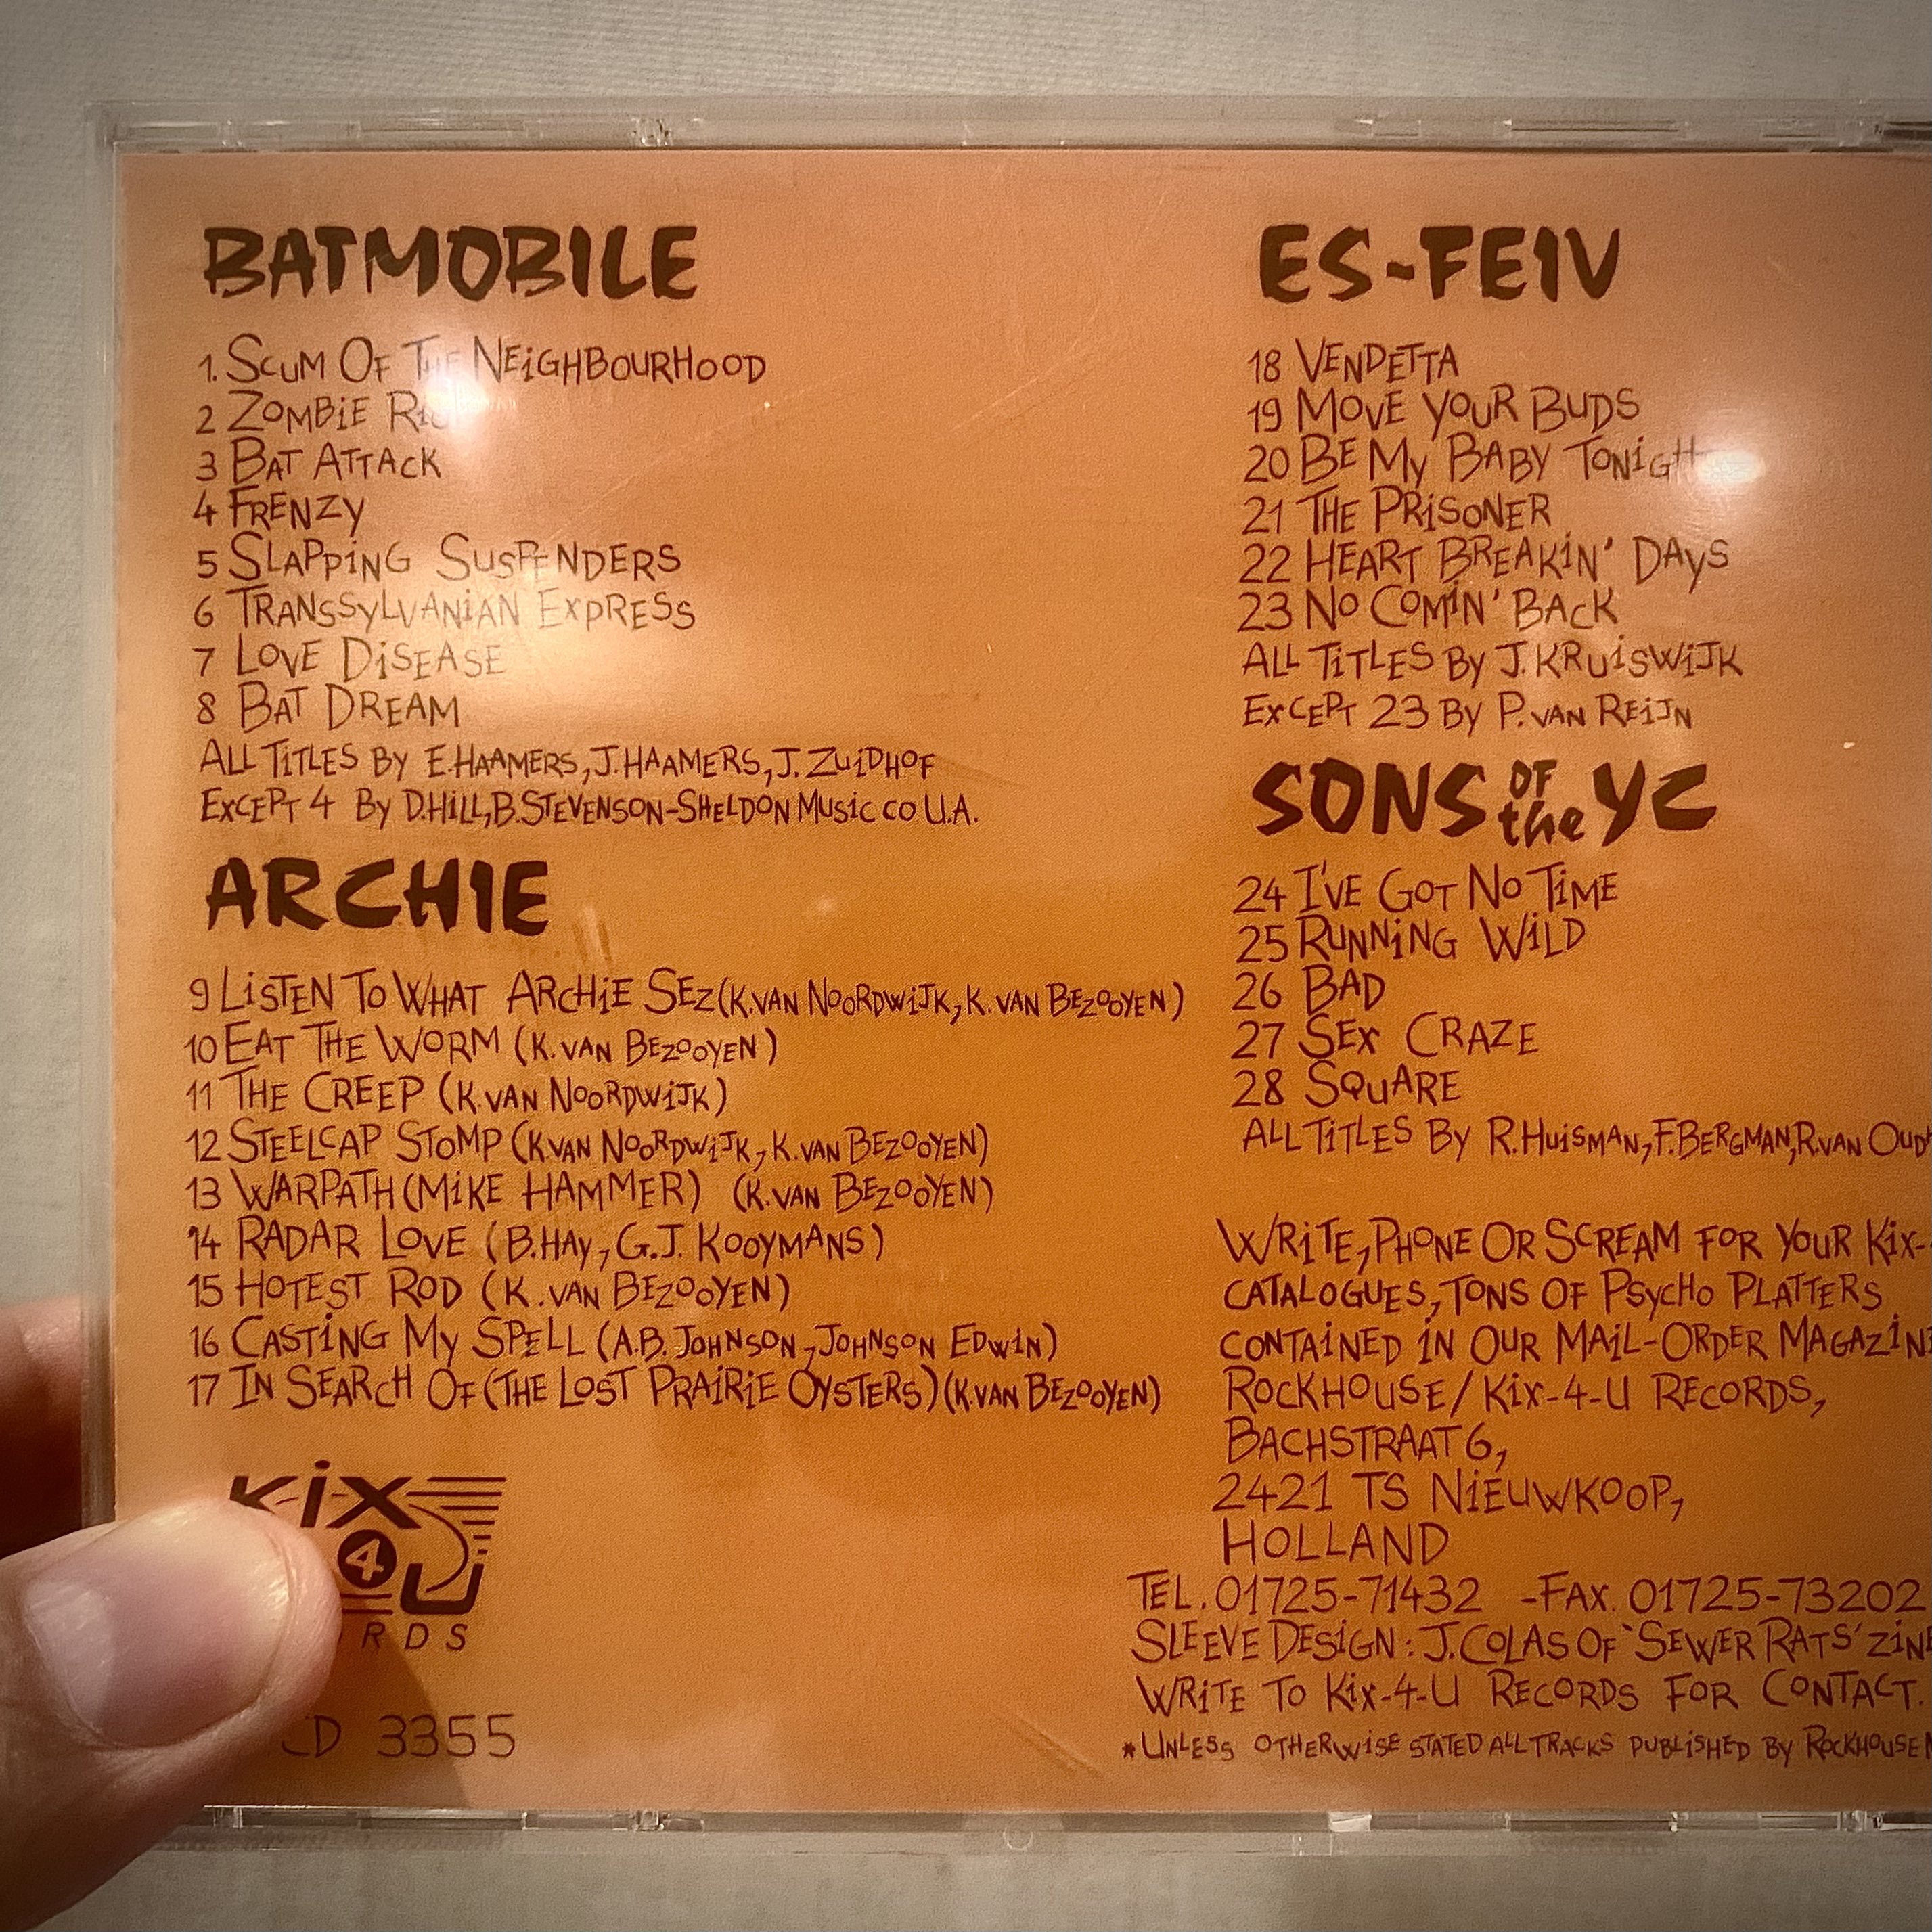 BATMOBILE
1. SCUM OF THE NEIGHBOURHOOD
2 ZOMBIE
3 BAT ATTACK
4 FRENZY
5 SLAPPING SUSPENDERS
6 TRANSSYLVANIAN EXPRESS
7 LOVE DISEASE
8 BAT DREAM
ALL TITLES BY E.HAAMERS, J.HAAMERS, J. ZUIDHOF
EXCEPT 4 BY D.HILL, B.STEVENSON-SHELDON MUSIC CO U.A.
ARCHIE
9 LISTEN TO WHAT ARCHIE SEZ (K.VAN NOORDWIJK, K. VAN BEZOOYEN)
10 EAT THE WORM (K. VAN BEZOOYEN)
11 THE CREEP (K. VAN NOORDWIJK)
12 STEELCAP STOMP (K.VAN NOORDWIJK, K. VAN BEZOOYEN)
13 WARPATH (MIKE HAMMER) (K. VAN BEZOOYEN)
14 RADAR LOVE (B.HAY, G.J. KOOYMANS)
15 HOTEST ROD (K. VAN BEZOOYEN)
16 CASTING MY SPELL (A.B. JOHNSON, JOHNSON EDWIN)
17 IN SEARCH OF (THE LOST PRAIRIE OYSTERS) (K.VAN BEZOOYEN)
KIX
4 U
RDS
CD 3355
ES-FEIV
18 VENDETTA
19 MOVE YOUR BUDS
20 BE MY BABY TONIGHT
21 THE PRISONER
22 HEART BREAKIN' DAYS
23 NO COMIN' BACK
ALL TITLES BY J. KRUISWIJK
EXCEPT 23 BY P. VAN REIJN
SONS OF the YC
24 I'VE GOT NO TIME
25 RUNNING WILD
26 BAD
27 SEX CRAZE
28 SQUARE
ALL TITLES BY R.HUISMAN, F.BERGMAN, R.VAN OUD
WRITE, PHONE OR SCREAM FOR YOUR KIX-
CATALOGUES, TONS OF PSYCHO PLATTERS
CONTAINED IN OUR MAIL-ORDER MAGAZINE
ROCKHOUSE/KIX-4-U RECORDS,
BACHSTRAAT 6,
2421 TS NIEUWKOOP,
HOLLAND
TEL. 01725-71432 -FAX. 01725-73202
SLEEVE DESIGN: J. COLAS OF 'SEWER RATS' ZINE
WRITE TO KIX-4-U RECORDS FOR CONTACT.
*UNLESS OTHERWISE STATED ALL TRACKS PUBLISHED BY ROCKHOUSE